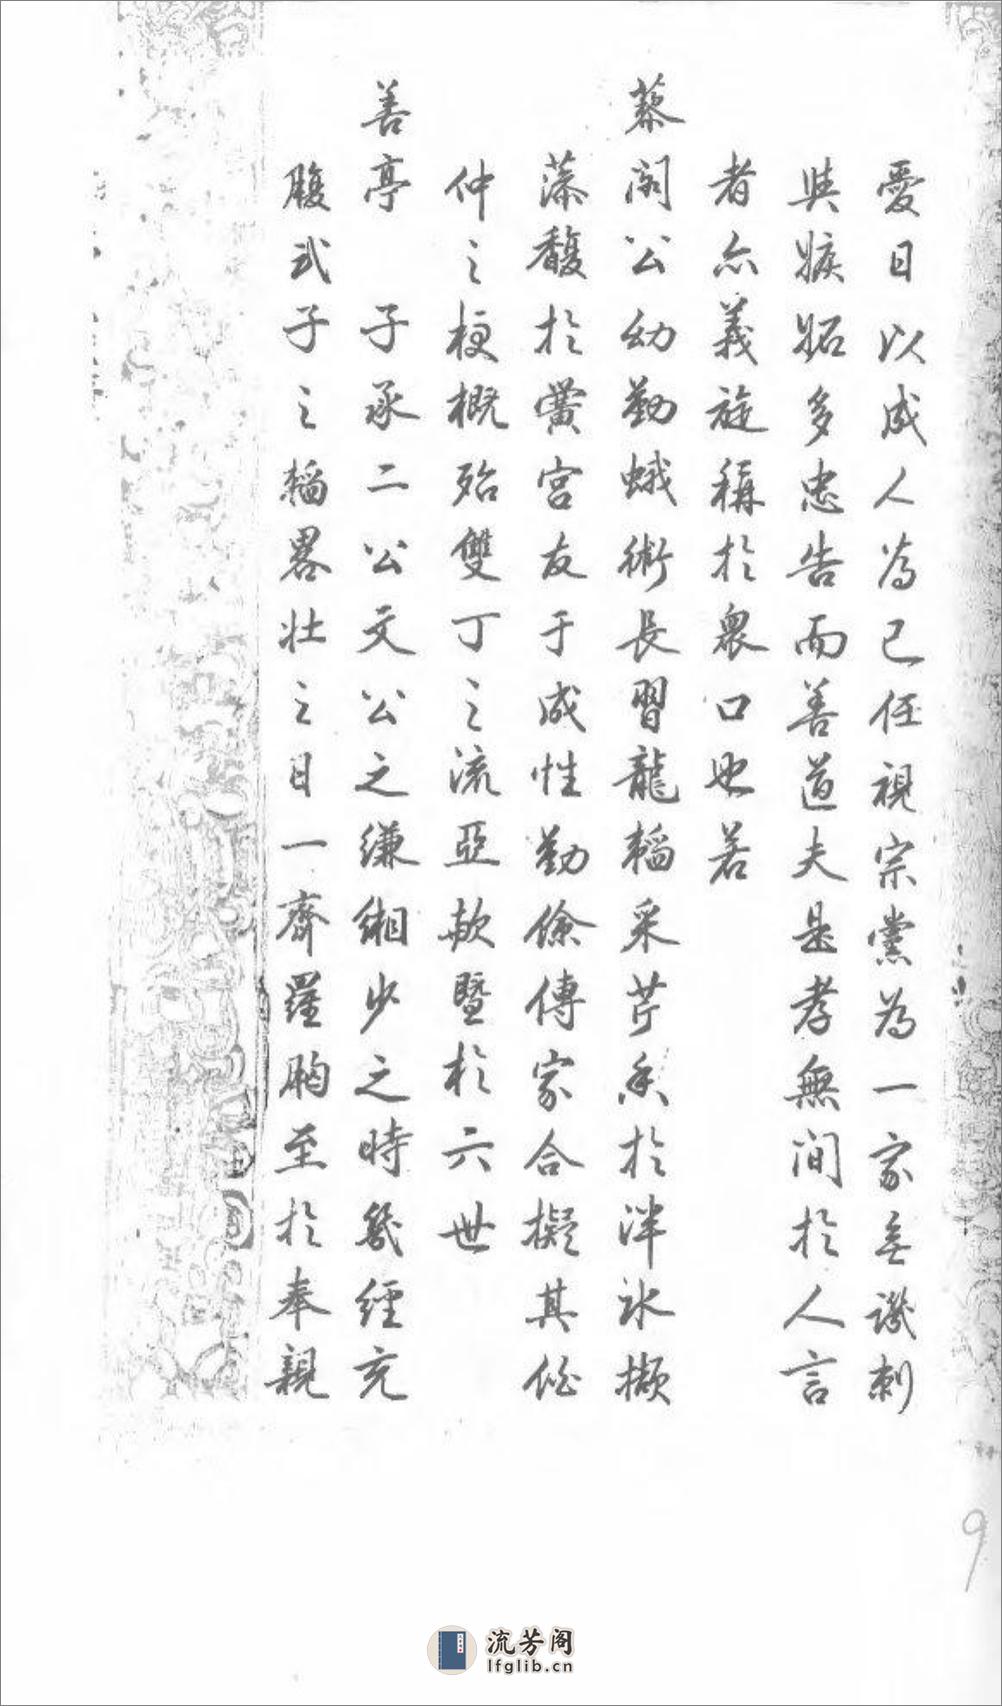 愛日以成人為己任視宗黨為一家無譏刺
與嫉妬多忠告而善道夫是孝無間於人言
者亦義旋稱於衆口也若
藜閣公幼勤蛾術長習龍韜采芹香於泮水擷
藻馥於黌宮友于成性勤儉傳家合擬其伯
仲之梗概殆雙丁之流亞歟暨於六世
善亭 子承二公文公之縑緗少之時幾經充
腹武子之韜畧壯之日一齊羅胸至於奉親
9
流芳阁
lfglib.cn